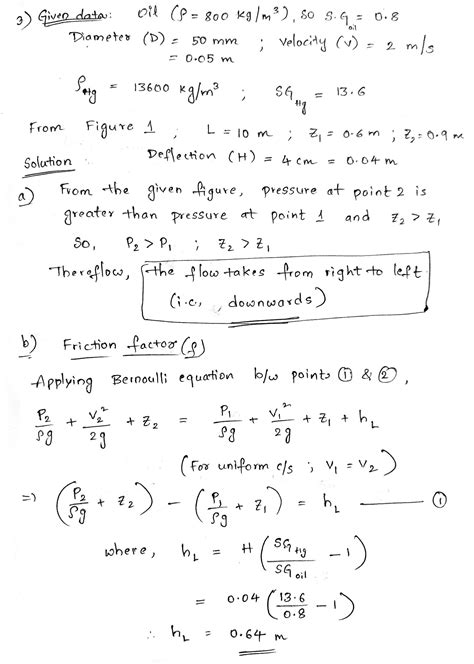 3) Given data: Oil (ρ = 800 kg/m³), so S.G_oil = 0.8
Diameter (D) = 50 mm ; velocity (v) = 2 m/s
= 0.05 m
ρ_Hg = 13600 kg/m³ ; SG_Hg = 13.6
From Figure 1, L = 10 m ; Z₁ = 0.6 m ; Z₂ = 0.9 m
Solution Deflection (H) = 4 cm = 0.04 m
a) From the given figure, pressure at point 2 is
greater than pressure at point 1 and Z₂ > Z₁
So, P₂ > P₁ ; Z₂ > Z₁
Thereflow, the flow takes from right to left.
(i.e, downwards)
b) Friction factor (f)
Applying Bernoulli equation b/w points ① & ②,
P₂/ρg + V₂²/2g + Z₂ = P₁/ρg + V₁²/2g + Z₁ + h_L
(For uniform c/s ; V₁ = V₂)
⇒ (P₂/ρg + Z₂) − (P₁/ρg + Z₁) = h_L —— ①
where, h_L = H (SG_Hg/SG_oil − 1)
= 0.04 (13.6/0.8 − 1)
∴ h_L = 0.64 m